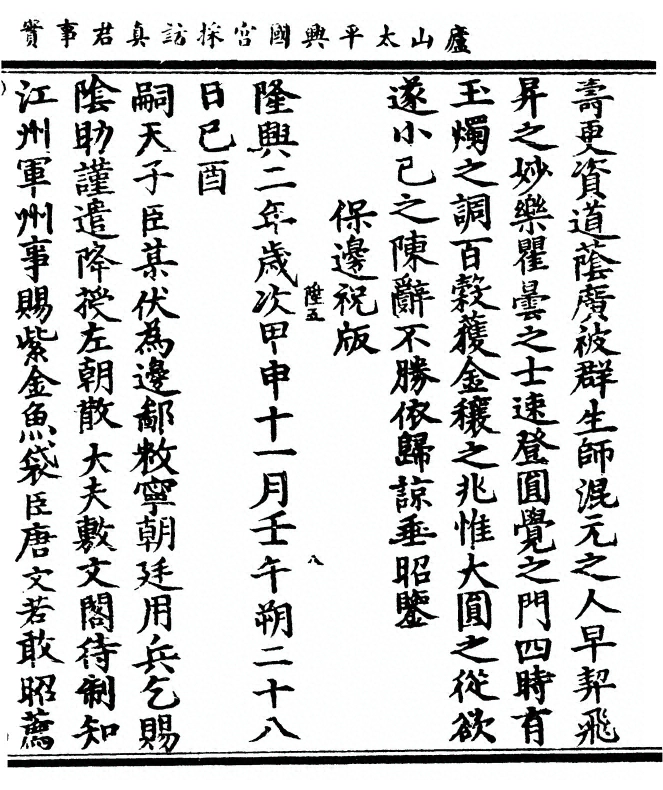 廬山太平興國宮採訪真君事實
壽更資道蔭廣被群生師混元之人早契飛
昇之妙樂瞿曇之士速登圓覺之門四時有
玉燭之調百穀獲金穰之兆惟大圓之從欲
遂小己之陳辭不勝依歸諒垂昭鑒
保邊祝版
陞五
隆興二年歲次甲申十一月壬午朔二十八
八
日己酉
嗣天子臣某伏為邊鄙敉寧朝廷用兵乞賜
陰助謹遣降授左朝散大夫敷文閣待制知
江州軍州事賜紫金魚袋臣唐文若敢昭薦